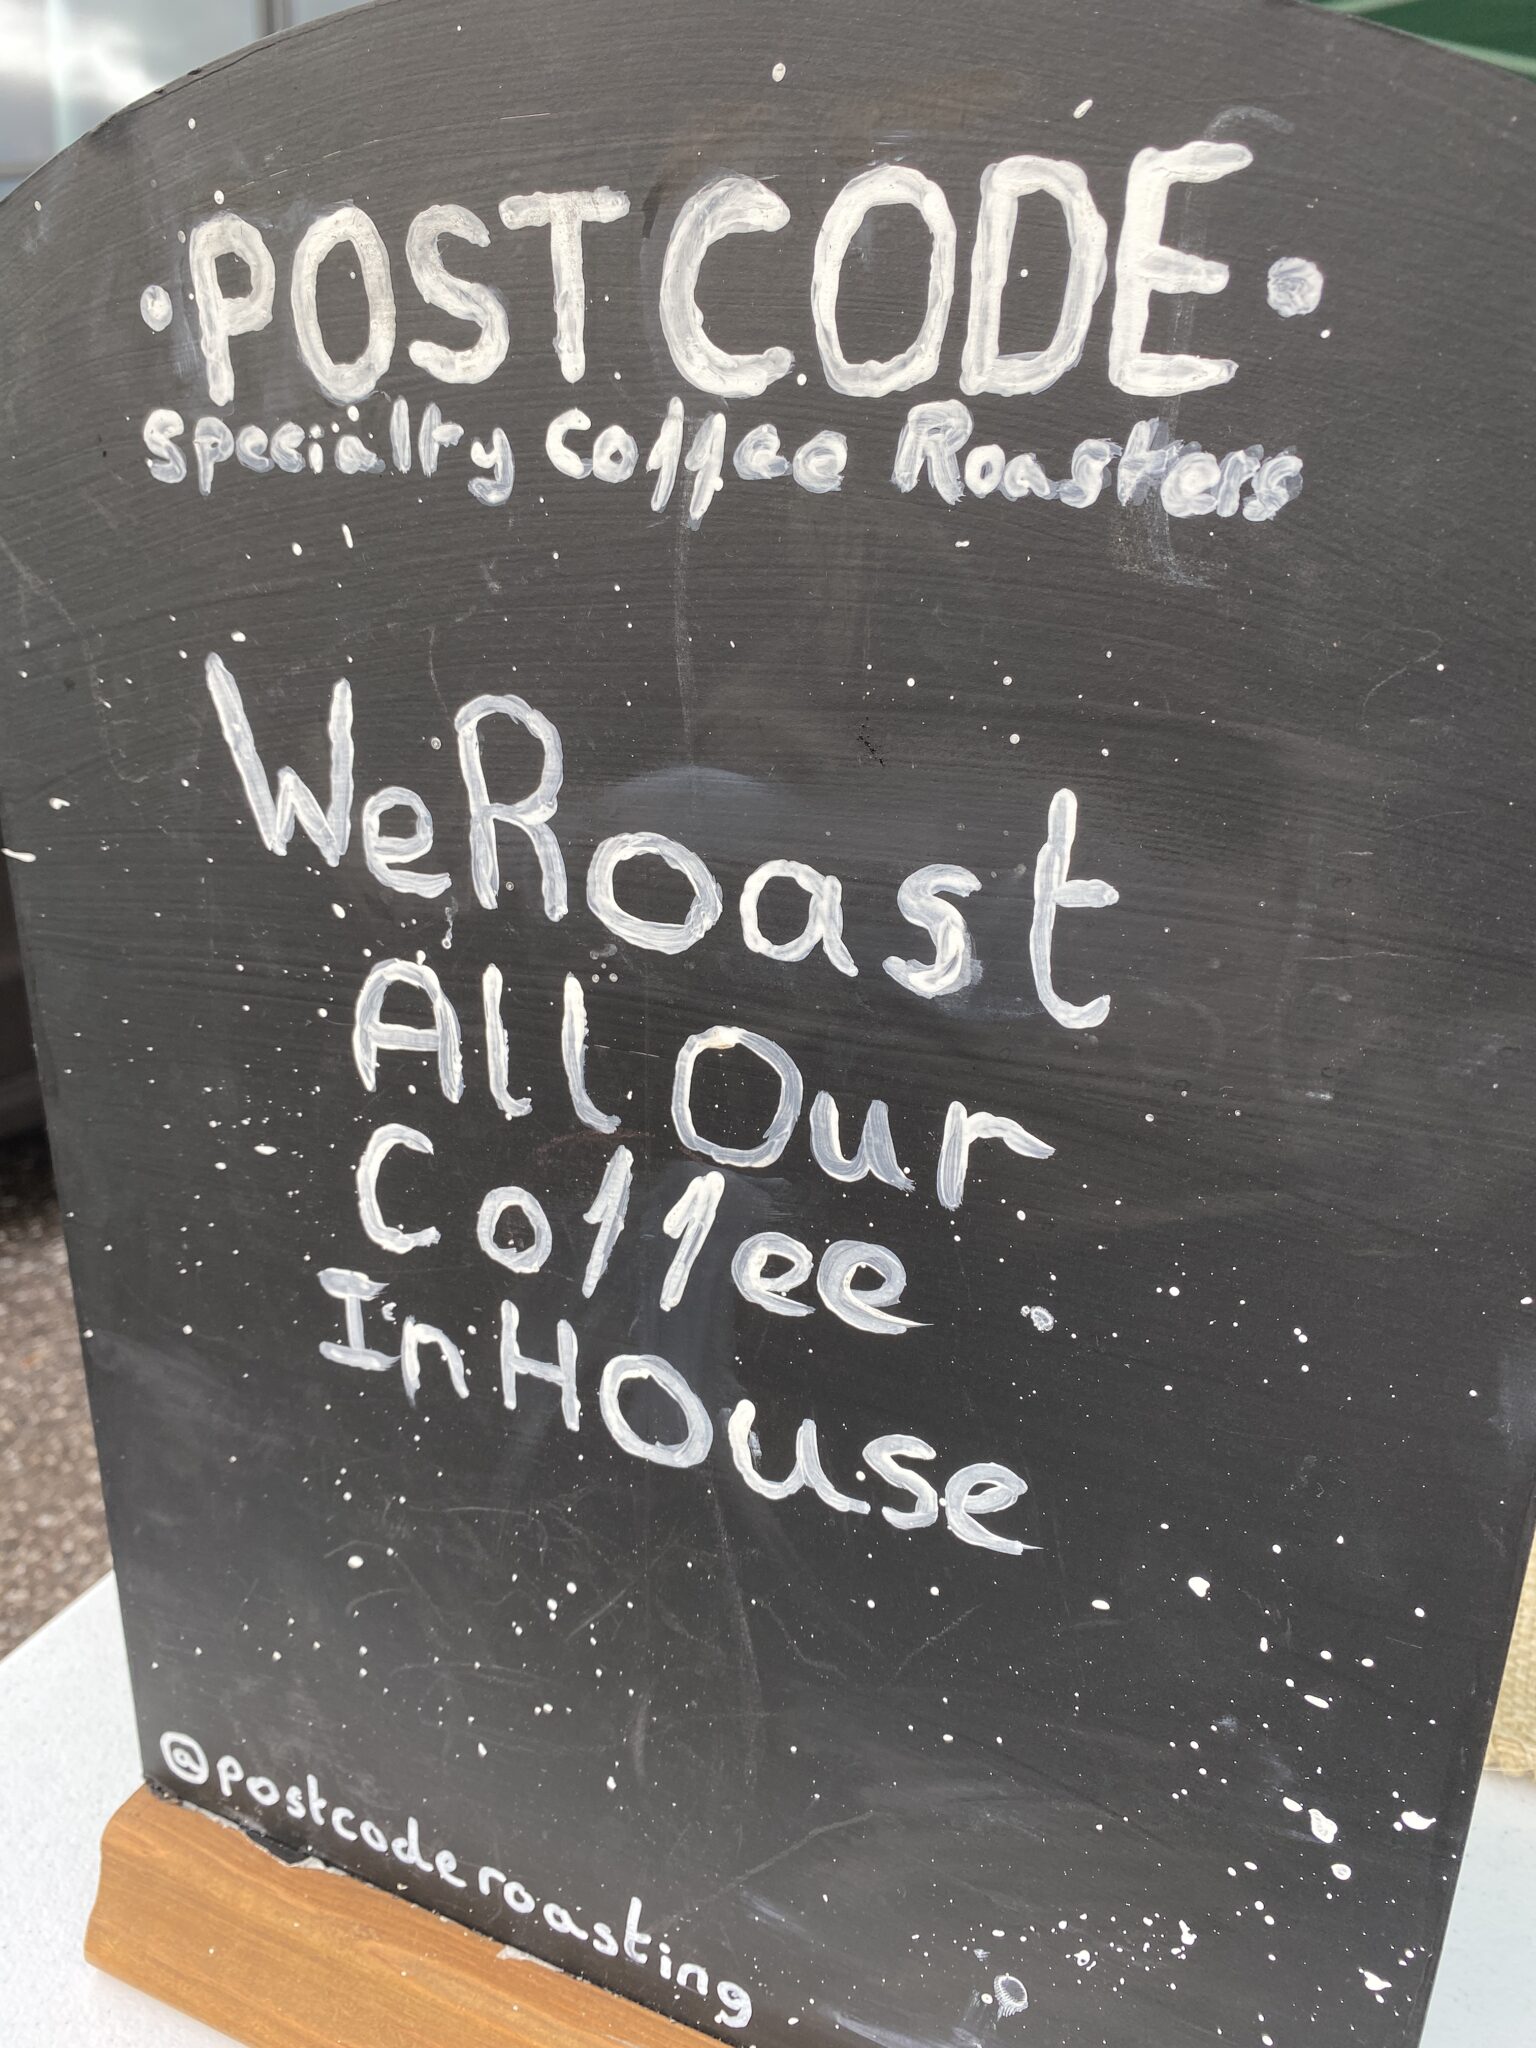 ·POSTCODE·
Specialty Coffee Roasters
We Roast
All Our
Coffee
In House
@postcoderoasting